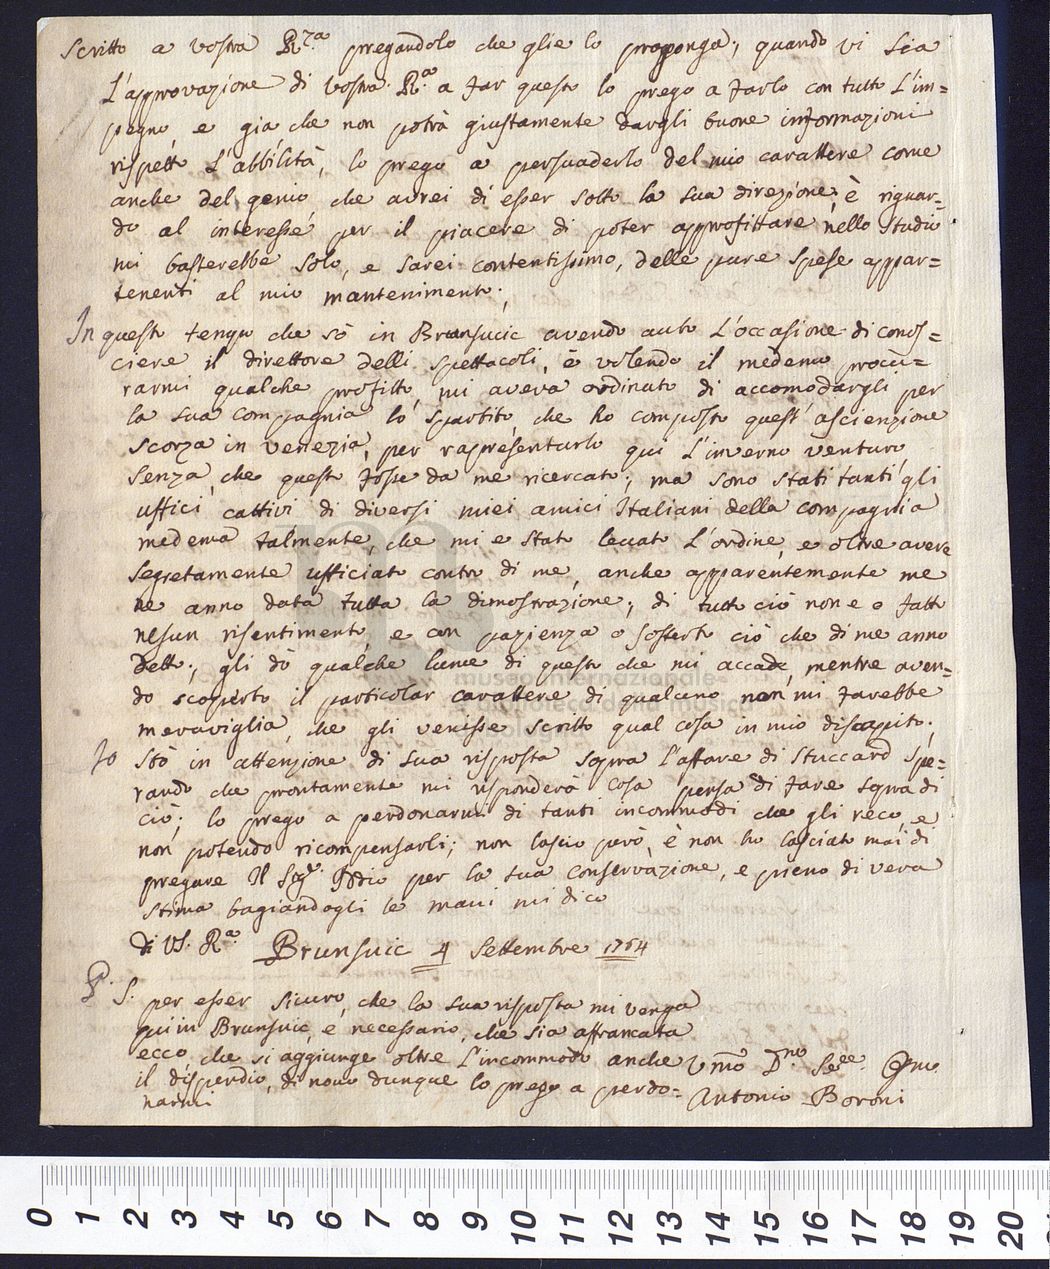 scritto a vostra R.za pregandolo che glie lo proponga, quando vi sia
l'approvazione di vostra R.a a far questo lo prego a farlo con tutto l'im=
pegno, e gia che non potrà giustamente dargli buone informazioni
rispetto l'abbilità, lo prego a persuaderlo del mio carattere come
anche del genio che avrei di esser sotto la sua direzione, è riguar=
do al interesse per il piacere di poter approfittare nello studio
mi basterebbe solo, e sarei contentissimo, delle pure spese appar=
tenenti al mio mantenimento;
In questo tempo che sò in Brunsuic avendo auto l'occasione di conos=
ciere il direttore delli spettacoli, è volendo il medemo procu=
rarmi qualche profitto, mi aveva ordinato di accomodargli per
la sua compagnia lo spartito, che ho composto quest'ascienzione
scorza in Venezia, per rapresentarlo qui l'inverno venturo
senza, che questo fosse da me ricercato; ma sono stati tanti gli
uffici cattivi di diversi miei amici Italiani della compagnia
medema talmente, che mi e stato levato l'ordine, e oltre avere
segretamente ufficiato contro di me, anche apparentemente me
ne anno data tutta la dimostrazione; di tutto ciò non e o fatto
nesun risentimento, e con pazienza o sofferto ciò che di me anno
detto; gli dò qualche lume di questo che mi accade, mentre aven=
do scoperto il particolar carattere di qualcuno non mi farebbe
meraviglia, che gli venisse scritto qual cosa in mio discapito;
Io stò in attenzione di sua risposta sopra l'affare di Stuccard spe=
rando che prontamente mi risponderà cosa pensa di fare sopra di
ciò; lo prego a perdonarmi di tanti incommodi che gli reco, e
non potendo ricompensarli; non lascio però, è non ho lasciato mai di
pregare Il Sig.r Iddio per la sua conservazione, e pieno di vera
stima bagiandogli le mani mi dico
di VS. R.a Brunsuic 4 Settembre 1764
P. S. per esser sicuro, che la sua risposta mi venga
qui in Brunsuic, è necessario, che sia affrancata
ecco che si aggiunge oltre l'incommodo anche
il dispendio, di novo dunque lo prego a perdo=
narmi
Vmo D.mo Se.re
Antonio Boroni
museo internazionale
e biblioteca della musica
0 1 2 3 4 5 6 7 8 9 10 11 12 13 14 15 16 17 18 19 20